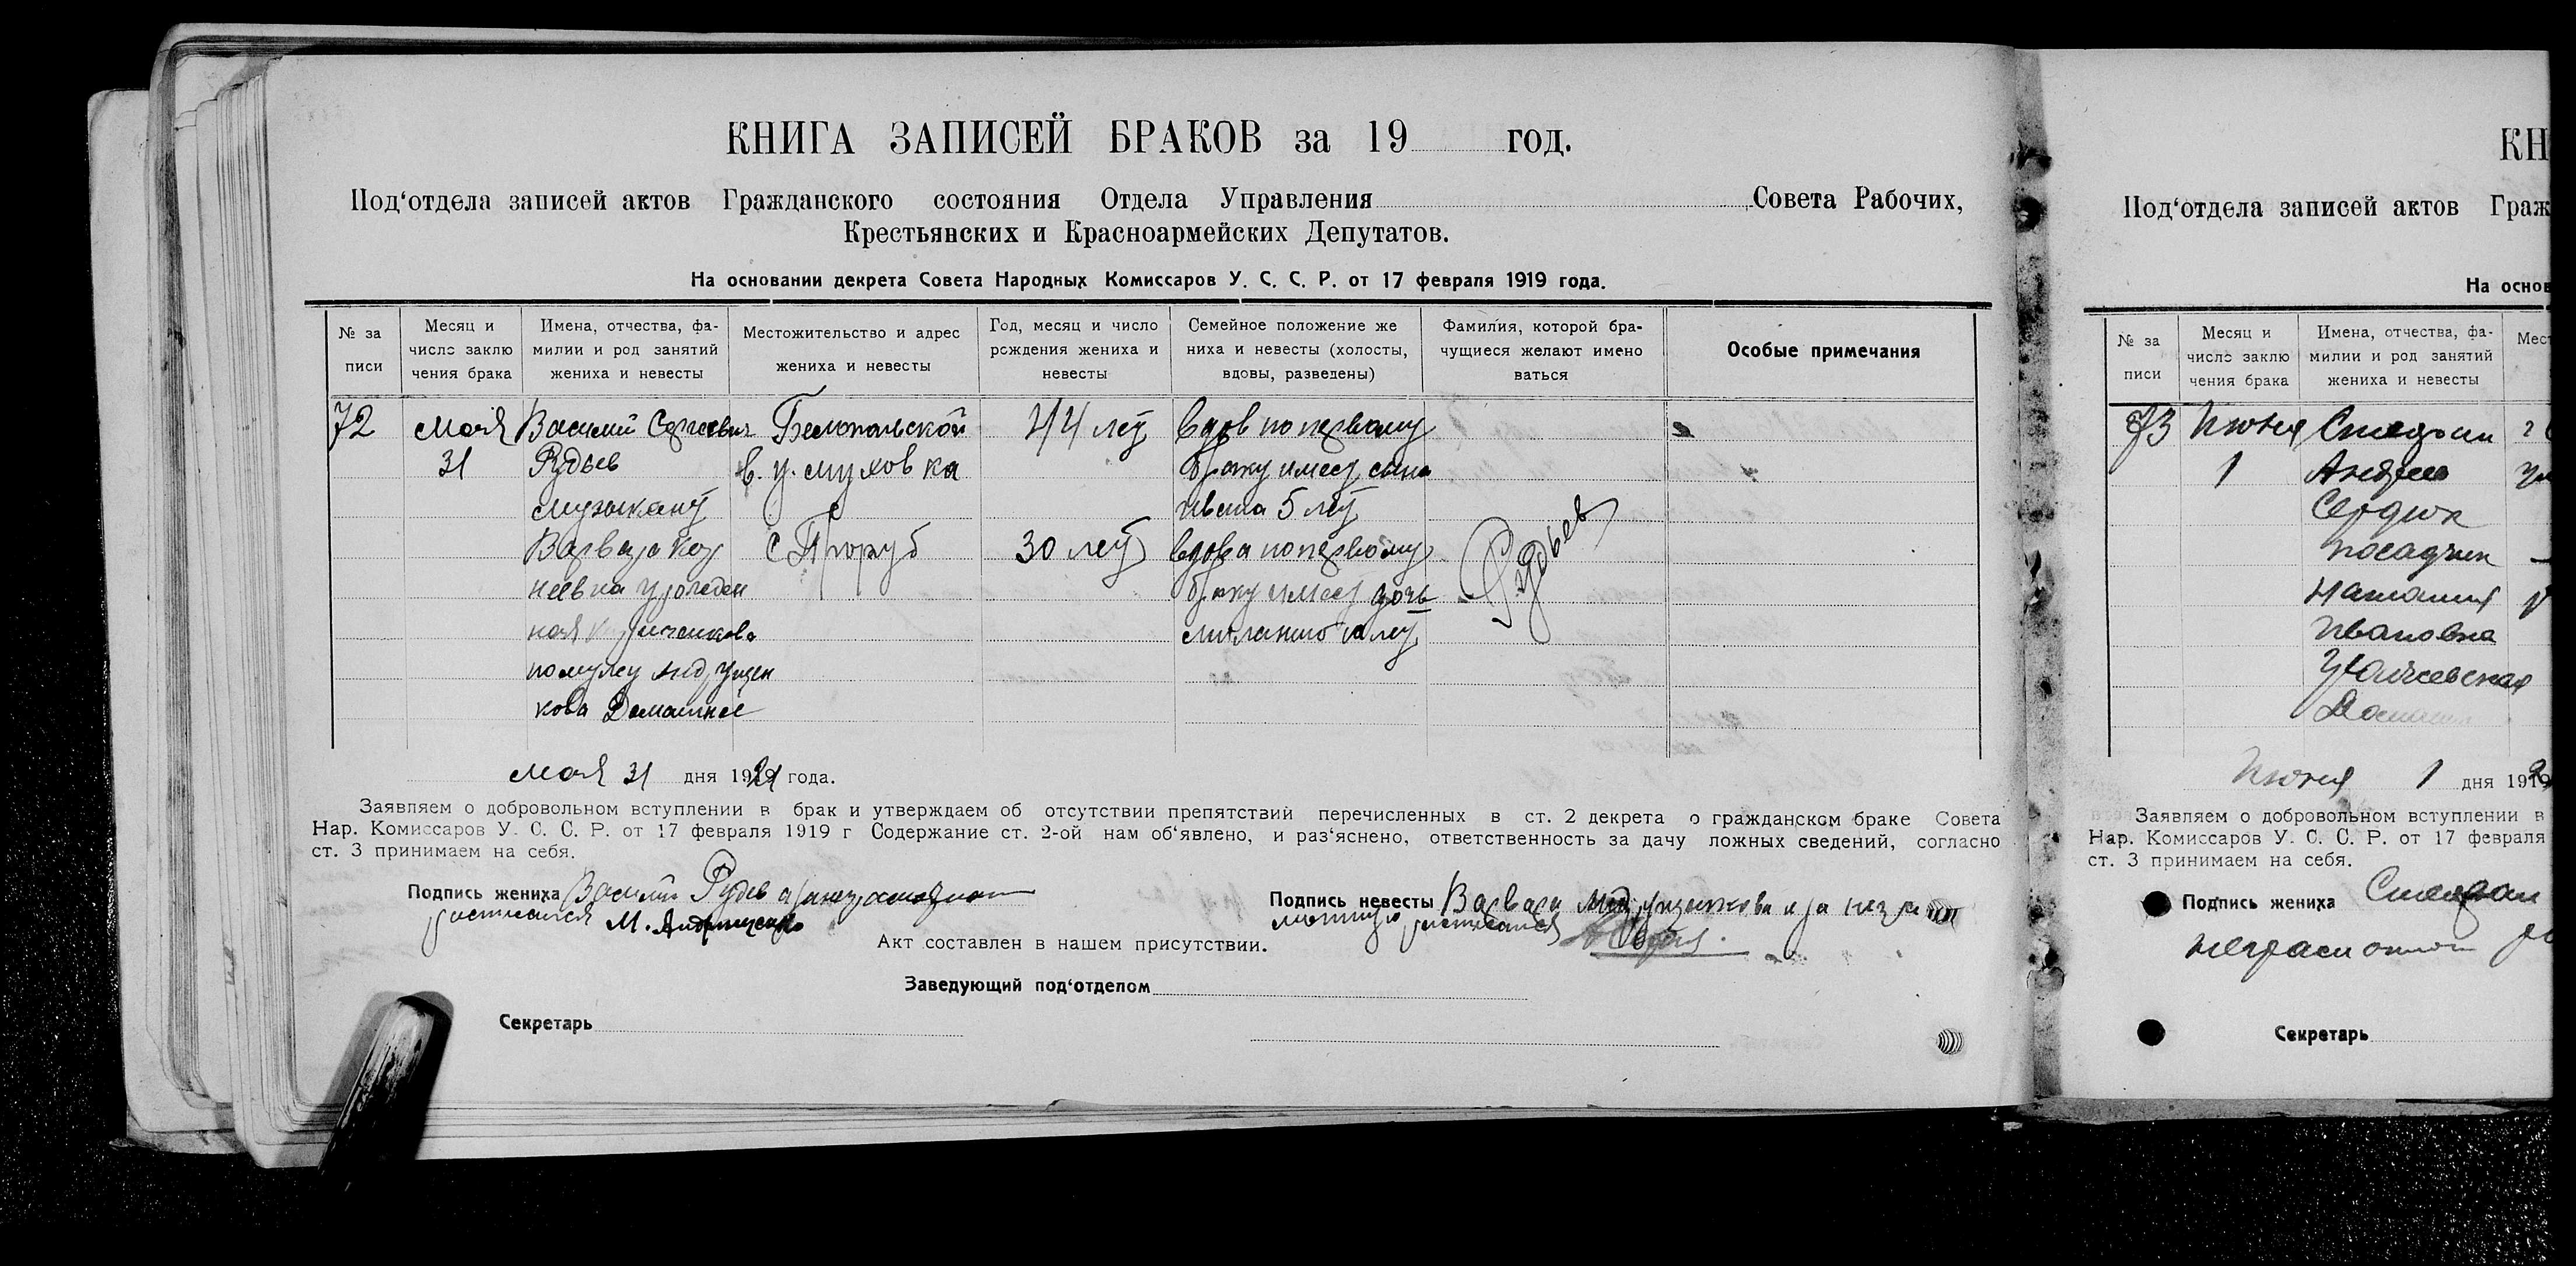 КНИГА ЗАПИСЕЙ БРАКОВ за 19 год.
Под‘отдела записей актов Гражданского состояния Отдела Управления Совета Рабочих,
Крестьянских и Красноармейских Депутатов.
На основании декрета Совета Народных Комиссаров У. С. С. Р. от 17 февраля 1919 года.
№ за писи
Месяц и число заклю чения брака
Имена, отчества, фа- милии и род занятий жениха и невесты
Местожительство и адрес жениха и невесты
Год, месяц и число рождения жениха и невесты
Семейное положение же ниха и невесты (холосты, вдовы, разведены)
Фамилия, которой бра- чущиеся желают имено ваться
Особые примечания
72 мая Василий Сергеевич Белопольской 44 лет вдов по первому
31 Рудьев в. у. муховка браку имеет сына
музыкант Ивана 5 лет
Варвара Кор с Проруб 30 лет вдова по первому
неевна урожден браку имеет дочь
ная лет
Рудьев
по мужу Андрущен
кова Домашнее
мая 31 дня 1921 года.
Заявляем о добровольном вступлении в брак и утверждаем об отсутствии препятствий перечисленных в ст. 2 декрета о гражданском браке Совета
Нар. Комиссаров У. С. С. Р. от 17 февраля 1919 г Содержание ст. 2-ой нам об‘явлено, и раз‘яснено, ответственность за дачу ложных сведений, согласно
ст. 3 принимаем на себя.
Подпись жениха Василий Рудьев
расписался М. Андрущенко
Подпись невесты Варвара Андрущенкова
расписался
Акт составлен в нашем присутствии.
Заведующий под‘отделом
Секретарь
КН
Под‘отдела записей актов Граж
На основ
№ за писи
Месяц и число заклю чения брака
Имена, отчества, фа- милии и род занятий жениха и невесты
Мест
73 Июня Степан
1 Андрев
Сердюк
посадчик
Наталия
Ивановна
Июня 1 дня 19
Заявляем о добровольном вступлении в
Нар. Комиссаров У. С. С. Р. от 17 февраля
ст. 3 принимаем на себя.
Подпись жениха Степан
неграмотный
Секретарь